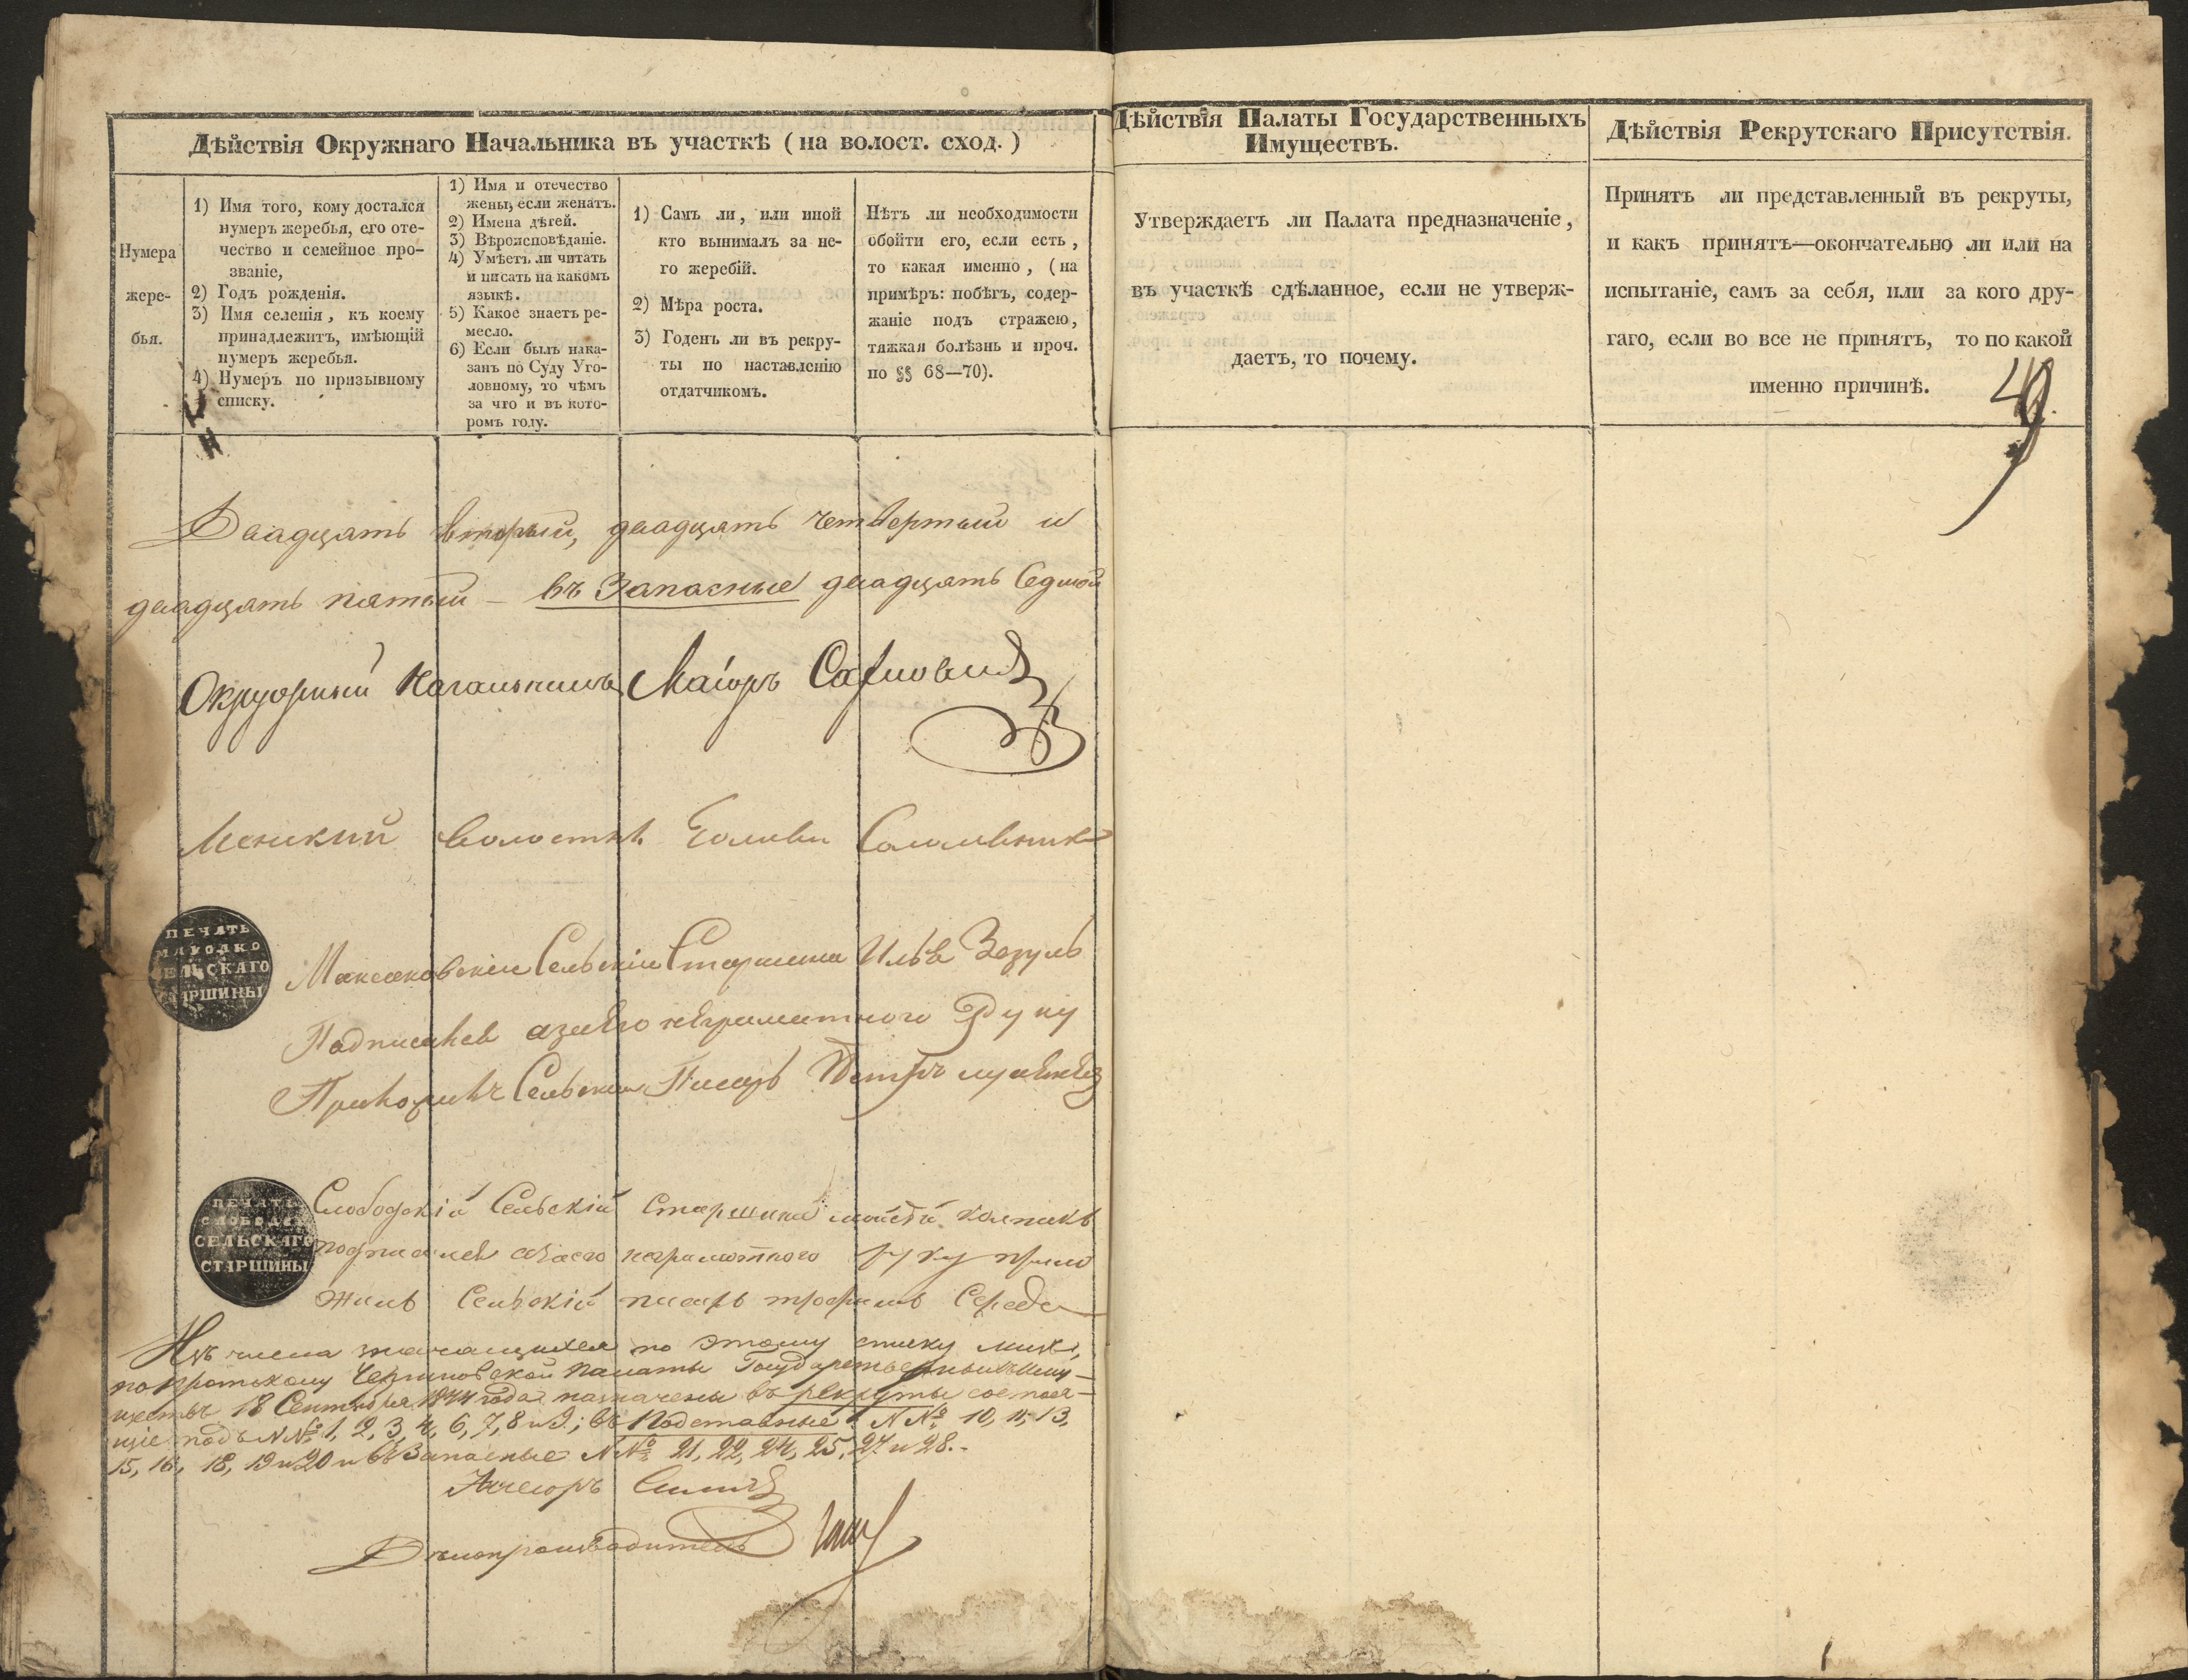 Дѣйствія Окружнаго Начальника въ участкѣ (на волост. сход.)
Нумера
жере-
бья.
1) Имя того, кому достался
нумеръ жеребья, его оте-
чество и семейное про-
званіе,
2) Годъ рожденія.
3) Имя селенія, къ коему
принадлежитъ, имѣющій
нумеръ жеребья.
4) Нумеръ по призывному
списку.
1) Имя и отечество
жены, если женатъ.
2) Имена дѣтей.
3) Вѣроисповѣданіе.
4) Умѣетъ ли читать
и писать на какомъ
языкѣ.
5) Какое знаетъ ре-
месло.
6) Если былъ нака-
занъ по Суду Уго-
ловному, то чѣмъ
за что и въ кото-
ромъ году.
1) Самъ ли, или иной
кто вынималъ за не-
го жеребій.
2) Мѣра роста.
3) Годенъ ли въ рекру-
ты по наставленію
отдатчикомъ.
Нѣтъ ли необходимости
обойти его, если есть,
то какая именно, (на
примѣръ: побѣгъ, содер-
жаніе подъ стражею,
тяжкая болѣзнь и проч.
по §§ 68—70).
Двадцать вторый, двадцать четвертый и
двадцать пятый — въ Запасные двадцать Седмой
Окружный Начальникъ Маіоръ
Менский Голова
ПЕЧАТЬ
СЕЛЬСКАГО
СТАРШИНЫ
Максаковскій Сельскій Старшина Илья Зезуль
неграмотного Руку
Приложилъ Сельский Писарь Петръ
ПЕЧАТЬ
СЛОБОДСК
СЕЛЬСКАГО
СТАРШИНЫ
Слободскій Сельскій Старшина
неграмотного руку прило
жилъ Сельскій писарь трофимъ Середа
Изъ числа значащихся по этому списку лицъ,
по протоколу Черниговской палаты Государственныхъ Иму-
ществъ 18 Сентября 1844 года назначены въ рекруты состоя-
щіе подъ N№ 1, 2, 3, 4, 6, 7, 8 и 9.; въ Подставные N№ 10, 11, 13,
15, 16, 18, 19 и 20 и въ Запасные N№ 21, 22, 24, 25, 27 и 28.-
Ассесоръ
Дѣлопроизводитель
Дѣйствія Палаты Государственныхъ
Имуществъ.
Утверждаетъ ли Палата предназначеніе,
въ участкѣ сдѣланное, если не утверж-
даетъ, то почему.
Дѣйствія Рекрутскаго Присутствія.
Принятъ ли представленный въ рекруты,
и какъ принятъ—окончательно ли или на
испытаніе, самъ за себя, или за кого дру-
гаго, если во все не принятъ, то по какой
именно причинѣ.